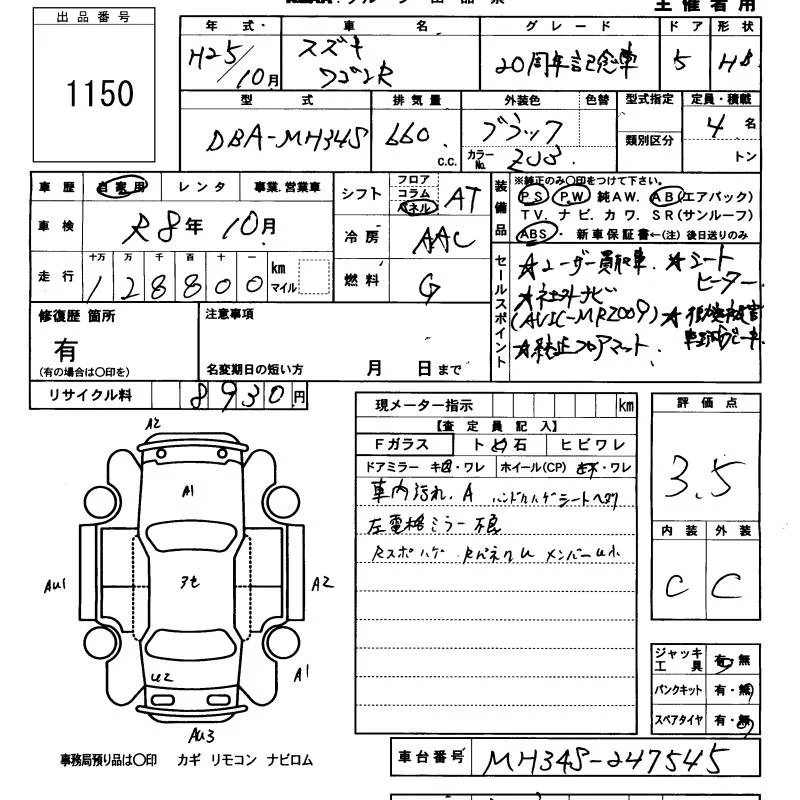 主催者用
出品番号
1150
年式 車名 グレード ドア 形状
H25/10月 スズキ ワゴンR 20周年記念車 5 HB
型式 排気量 外装色 色替 型式指定 定員・積載
DBA-MH34S 660 c.c. ブラック カラーNo. ZJ3 類別区分 4名 トン
車歴 自家用 レンタ 事業.営業車
シフト フロア コラム パネル AT
車検 R8年10月
冷房 AAC
走行 十万 万 千 百 十 一
128800 km マイル
燃料 G
装備品 ※純正のみ〇印をつけて下さい。
PS PW 純AW. AB(エアバック)
TV. ナビ. カワ. SR(サンルーフ)
ABS・新車保証書←(注)後日送りのみ
セールスポイント
★ユーザー買取車 ★シートヒーター
★社外ナビ
(AVIC-MRZ009)
★純正フロアマット
修復歴 箇所
有
(有の場合は〇印を)
注意事項
名変期日の短い方 月 日まで
リサイクル料 8930円
現メーター指示 km
【査定員記入】
Fガラス ト 石 ヒビワレ
ドアミラー キズ・ワレ ホイール(CP) キズ・ワレ
車内汚れ.A ハンドルハゲ シートヘタリ
左電格ミラー不良
評価点
3.5
内装 外装
C C
A2
A1
AU1 A2
U2 A1
AU3
ジャッキ工具 有・無
パンクキット 有・無
スペアタイヤ 有・無
事務局預り品は〇印 カギ リモコン ナビロム
車台番号 MH34S-247545